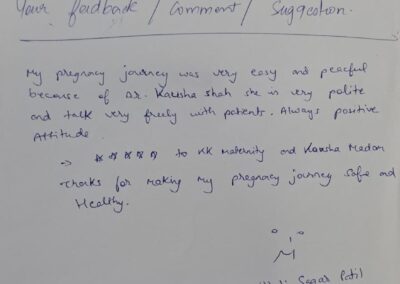 Your feedback / Comment / Suggestion.
My pregnacy journey was very easy and peaceful
because of Dr. Kausha shah she in very polite
and talk very freely with patients. Always positive
Attitude.
→ ☆☆☆☆☆ to KK Maternity and Kausha Madam
Thanks for making my pregnancy journey safe and
Healthy.
Sagar Patil